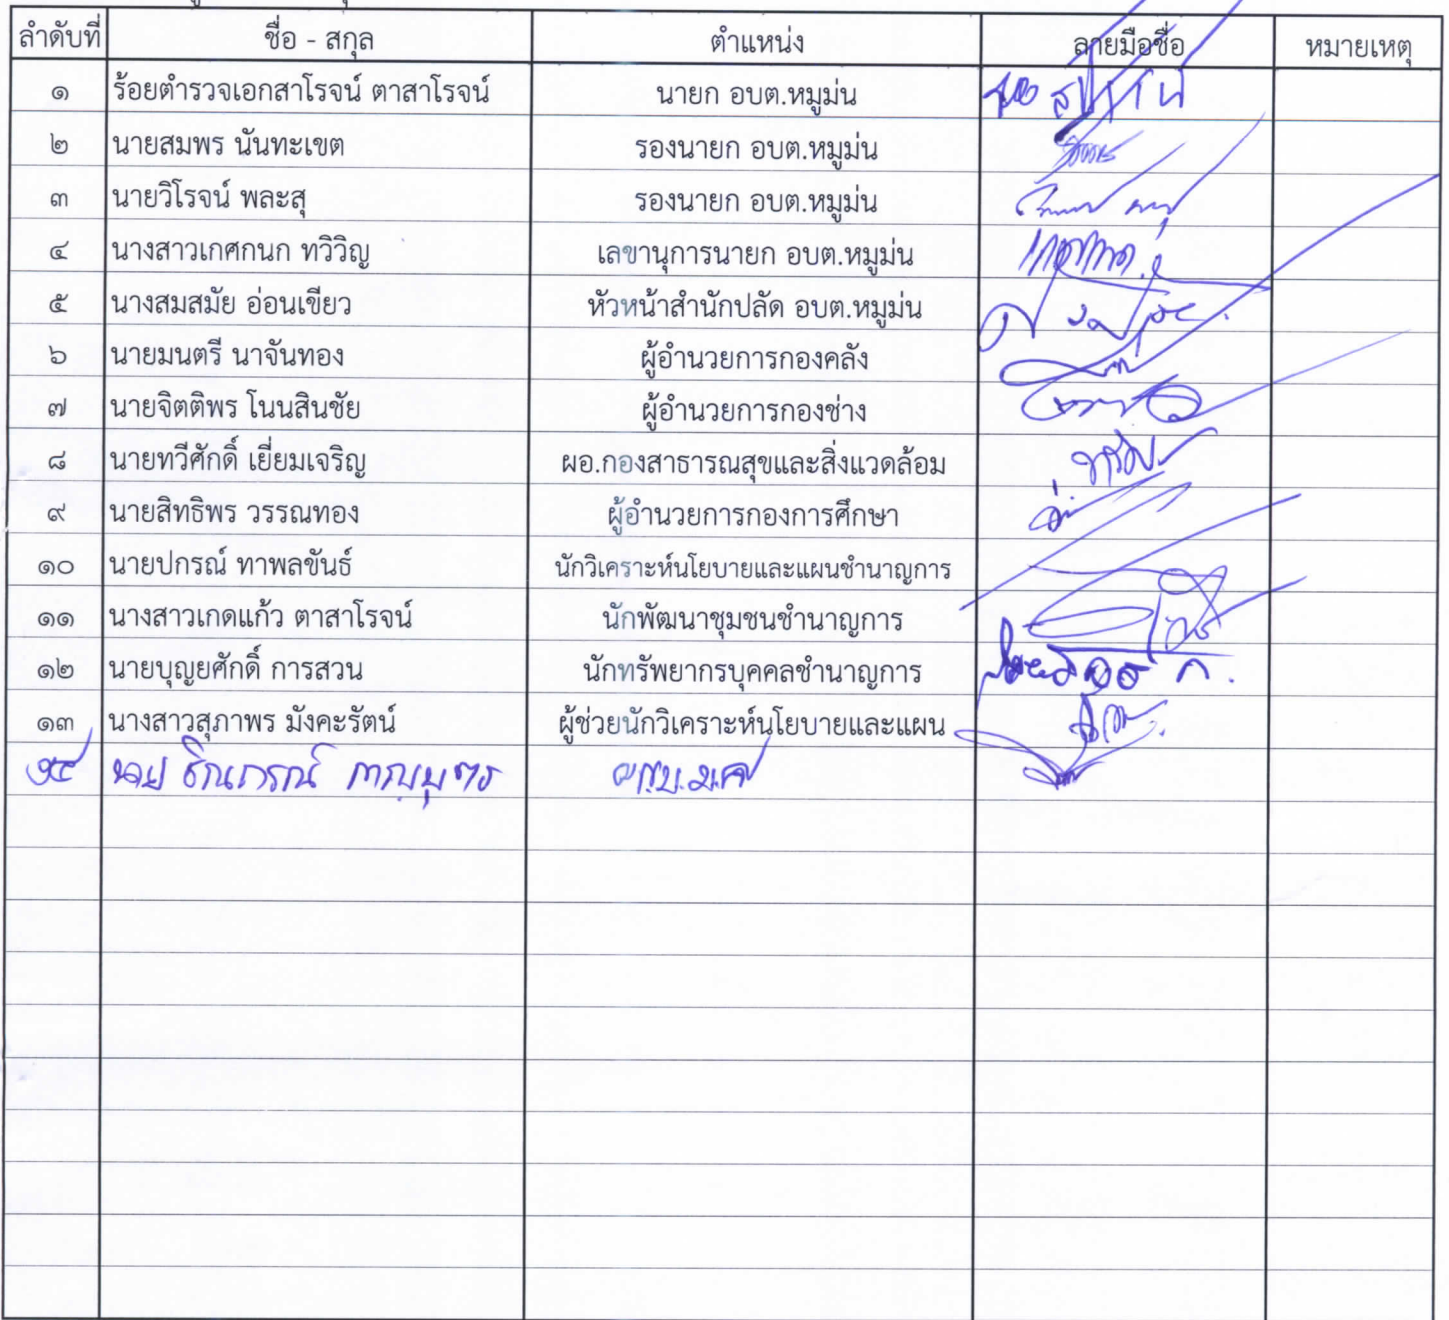 ลำดับที่ ชื่อ - สกุล ตำแหน่ง ลายมือชื่อ หมายเหตุ
๑ ร้อยตำรวจเอกสาโรจน์ ตาสาโรจน์ นายก อบต.หมูม่น
๒ นายสมพร นันทะเขต รองนายก อบต.หมูม่น
๓ นายวิโรจน์ พละสุ รองนายก อบต.หมูม่น
๔ นางสาวเกศกนก ทวิวิญ เลขานุการนายก อบต.หมูม่น
๕ นางสมสมัย อ่อนเขียว หัวหน้าสำนักปลัด อบต.หมูม่น
๖ นายมนตรี นาจันทอง ผู้อำนวยการกองคลัง
๗ นายจิตติพร โนนสินชัย ผู้อำนวยการกองช่าง
๘ นายทวีศักดิ์ เยี่ยมเจริญ ผอ.กองสาธารณสุขและสิ่งแวดล้อม
๙ นายสิทธิพร วรรณทอง ผู้อำนวยการกองการศึกษา
๑๐ นายปกรณ์ ทาพลขันธ์ นักวิเคราะห์นโยบายและแผนชำนาญการ
๑๑ นางสาวเกดแก้ว ตาสาโรจน์ นักพัฒนาชุมชนชำนาญการ
๑๒ นายบุญยศักดิ์ การสวน นักทรัพยากรบุคคลชำนาญการ
๑๓ นางสาวสุภาพร มังคะรัตน์ ผู้ช่วยนักวิเคราะห์นโยบายและแผน
๑๔ นาย